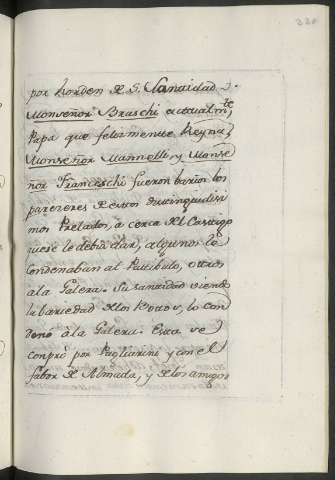 220
por horden de S. Sanctidad
Monseñor Braschi actualmte
Papa que felizmente Reyna,
Monseñor Mannelli, y Monse
ñor Franceschi fueron barios los
pareceres de estos distinguidisi
mos Prelados, a cerca del Castigo
que se le debia dar, algunos lo
condenaban al Patibulo, otros
a la Galera. Su santidad viendo
la bariedad de los Votos, lo con
denó à la Galera. Esta se
conpró por Pagliarini y con el
fabor de Almada, y de los amigos